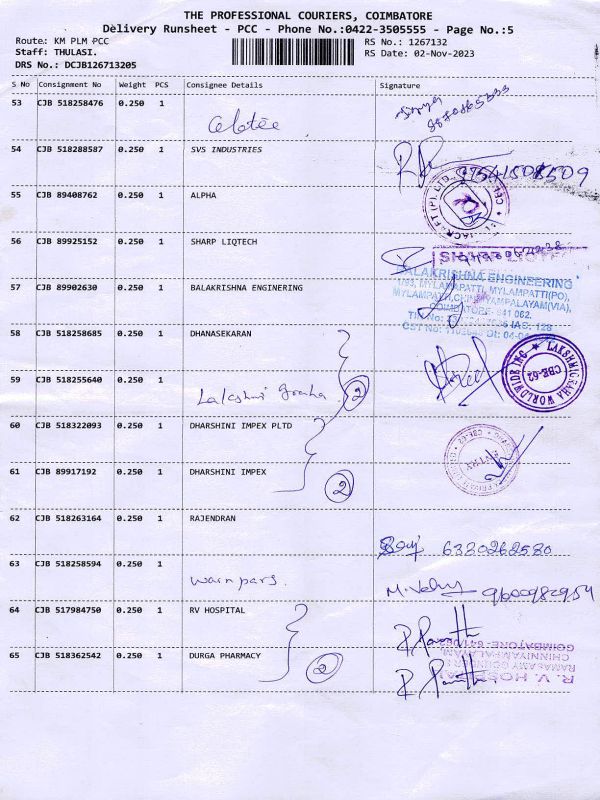 THE PROFESSIONAL COURIERS, COIMBATORE
Delivery Runsheet - PCC - Phone No.:0422-3505555 - Page No.:5
Route: KM PLM PCC
Staff: THULASI.
DRS No.: DCJB126713205
RS No.: 1267132
RS Date: 02-Nov-2023
S No Consignment No Weight PCS Consignee Details Signature
53 CJB 518258476 0.250 1
54 CJB 518288587 0.250 1 SVS INDUSTRIES
55 CJB 89408762 0.250 1 ALPHA
56 CJB 89925152 0.250 1 SHARP LIQTECH
57 CJB 89902630 0.250 1 BALAKRISHNA ENGINERING
BALAKRISHNA ENGINEERING
1/93, MYLAMAPATTI, MYLAMPATTI(PO),
COIMBATORE- 641 062.
58 CJB 518258685 0.250 1 DHANASEKARAN
LAKSHMIGRAHA WORLDWIDE INC
CBE-62
59 CJB 518255640 0.250 1 Lakshmi Graha 2
60 CJB 518322093 0.250 1 DHARSHINI IMPEX PLTD
61 CJB 89917192 0.250 1 DHARSHINI IMPEX 2
62 CJB 518263164 0.250 1 RAJENDRAN 6380262580
63 CJB 518258594 0.250 1 9600982954
64 CJB 517984750 0.250 1 RV HOSPITAL
65 CJB 518362542 0.250 1 DURGA PHARMACY 2
R. V. HOSPITAL